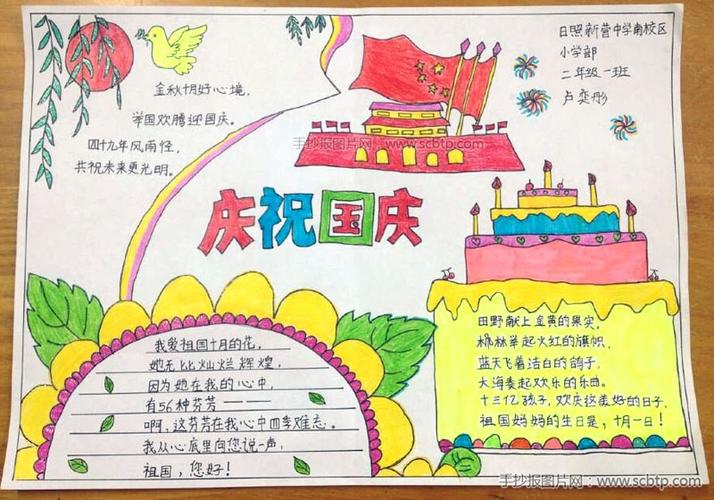 日照新营中学南校区
小学部
二年级一班
卢奕彤
金秋十月好心境,
举国欢腾迎国庆。
四十九年风雨径,
共祝未来更光明。
手抄报图片网:www.scbtp.com
庆祝国庆
我爱祖国十月的花,
她无比灿烂辉煌,
因为她在我的心中,
有56种芬芳——
啊,这芬芳在我心中四季难忘。
我从心底里向您说一声,
祖国,您好!
田野献上金黄的果实,
枫林举起火红的旗帜,
蓝天飞着洁白的鸽子,
大海奏起欢乐的乐曲。
十三亿孩子,欢庆这美好的日子,
祖国妈妈的生日是,十月一日!
手抄报图片网:www.scbtp.com